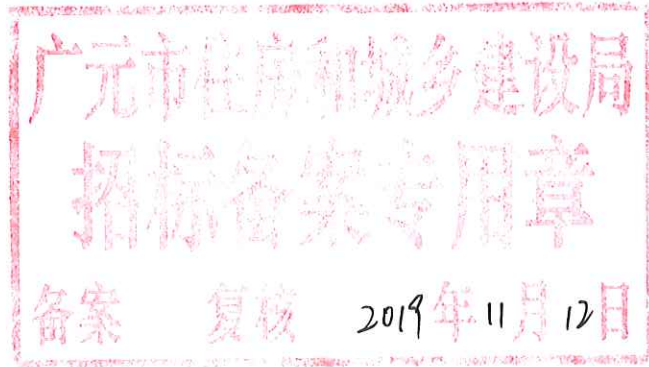 广元市住房和城乡建设局
招标备案专用章
备案 复核 2019年11月12日